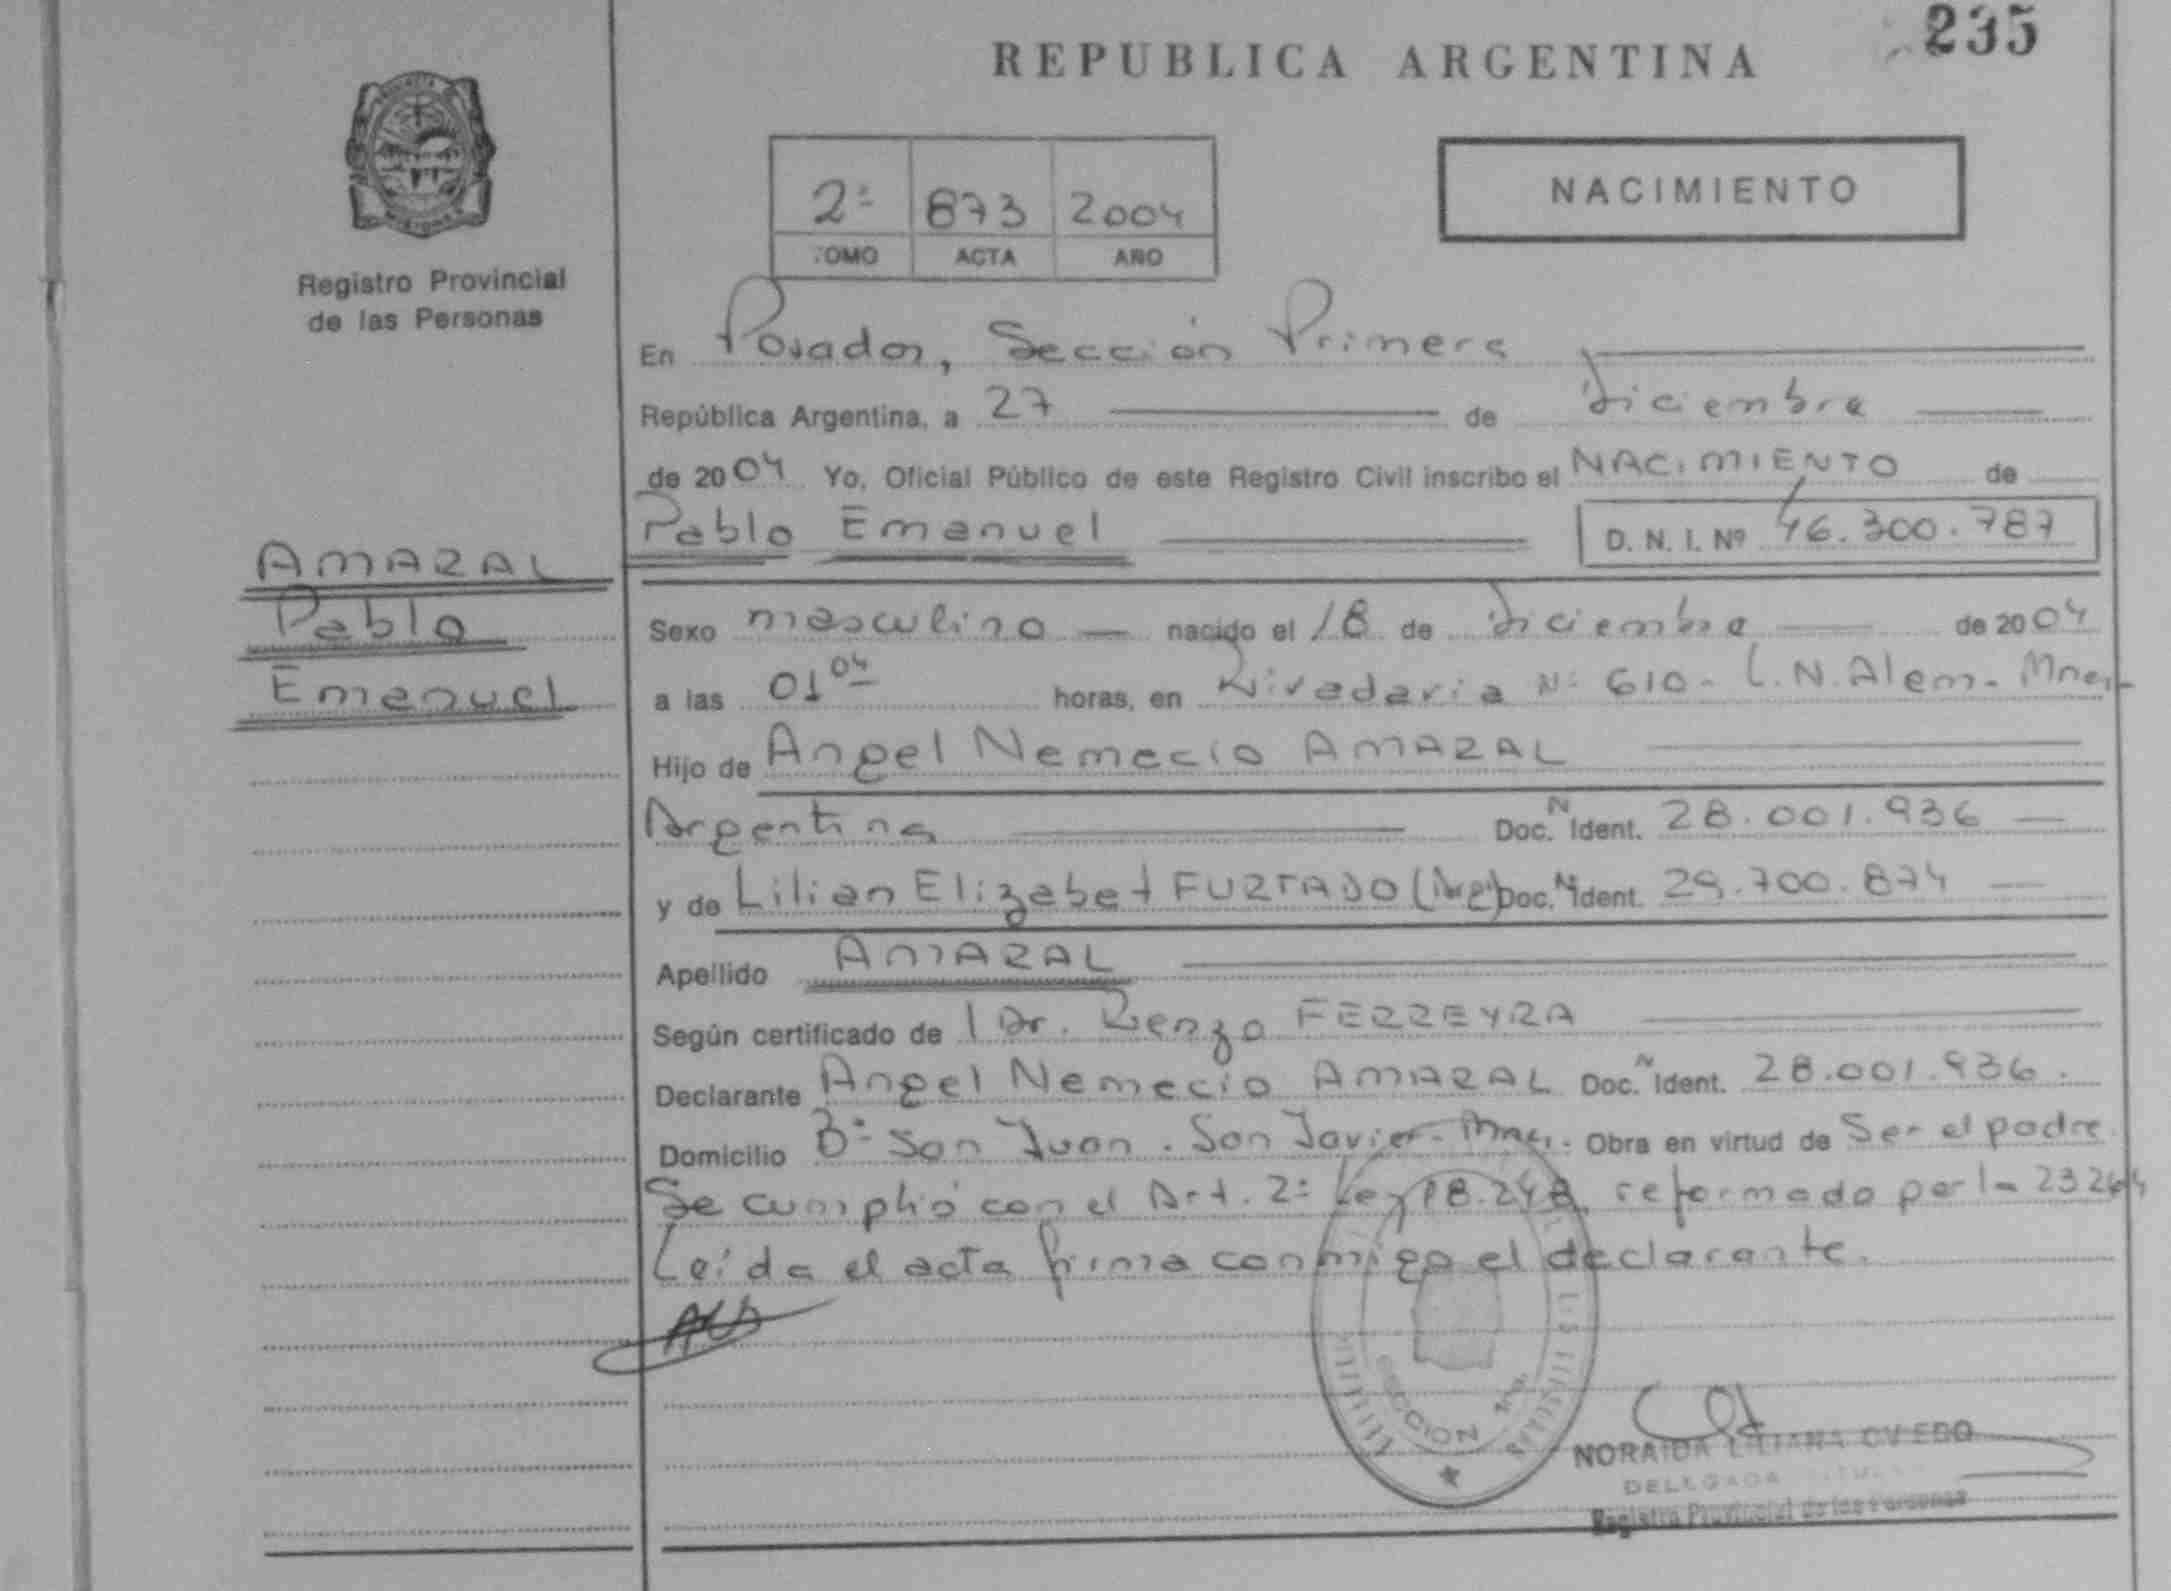 235
REPUBLICA ARGENTINA
NACIMIENTO
2º 873 2004
TOMO ACTA AÑO
Registro Provincial
de las Personas
En Posadas, Sección Primera
República Argentina, a 27 de diciembre
de 2004 Yo, Oficial Público de este Registro Civil inscribo el NACIMIENTO de
Pablo Emanuel D. N. I. Nº 46.300.787
AMARAL
Pablo
Emanuel
Sexo masculino nacido el 18 de diciembre de 2004
a las 01 04 horas, en Rivadavia Nº 610 - L.N. Alem - Mnes.
Hijo de Angel Nemecio AMARAL
Argentina Doc. N Ident. 28.001.936
y de Lilian Elizabet FURTADO (Arg) Doc. N Ident. 29.700.874
Apellido AMARAL
Según certificado de l Dr. Renzo FERREYRA
Declarante Angel Nemecio AMARAL Doc. N Ident. 28.001.936.
Domicilio Bº San Juan. San Javier - Mnes. Obra en virtud de Ser el padre.
Se cumplió con el Art. 2º Ley 18.248, reformada por la 23264
Leída el acta firma conmigo el declarante.
SECCION 1ra.
NORAIDA LILIANA OVIEDO
DELEGADA
Registro Provincial de las Personas